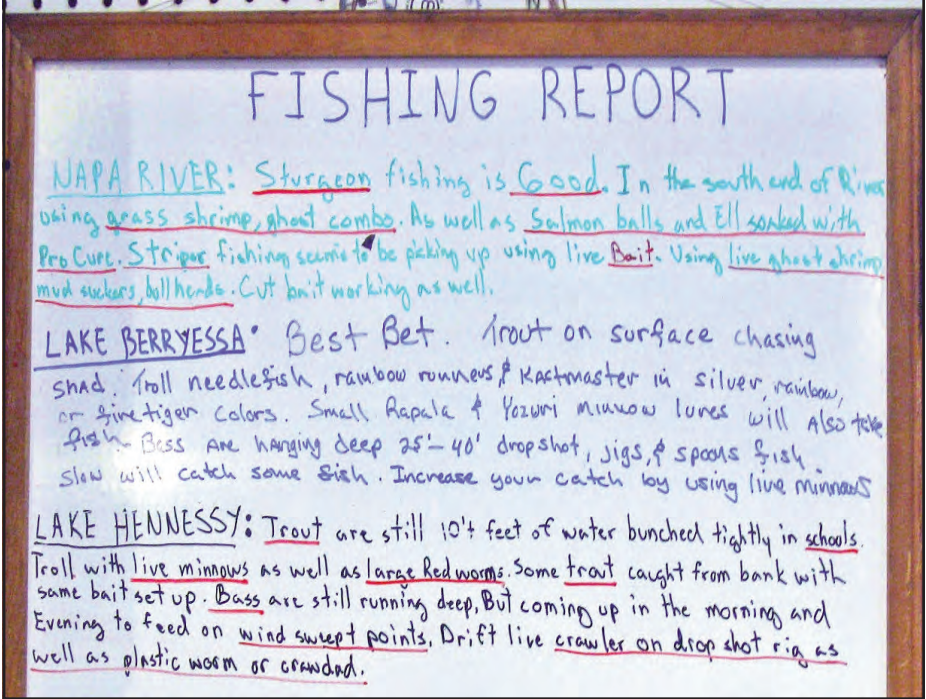 FISHING REPORT
NAPA RIVER: Sturgeon fishing is Good. In the south end of River
using grass shrimp, ghost combo. As well as Salmon balls and Ell soaked with
Pro Cure. Striper fishing seems to be picking up using live Bait. Using live ghost shrimp
mud suckers, bull heads. Cut bait working as well.
LAKE BERRYESSA: Best Bet. Trout on surface chasing
shad. Troll needlefish, rainbow runners, & Kastmaster in silver, rainbow,
or firetiger colors. Small Rapala & Yozuri minnow lures will Also take
fish. Bass are hanging deep 25'-40' dropshot, jigs, & spoons fish
slow will catch some fish. Increase your catch by using live minnows
LAKE HENNESSY: Trout are still 10't feet of water bunched tightly in schools.
Troll with live minnows as well as large Red worms. Some trout caught from bank with
same bait set up. Bass are still running deep, But coming up in the morning and
Evening to feed on wind swept points. Drift live crawler on drop shot rig as
well as plastic worm or crawdad.